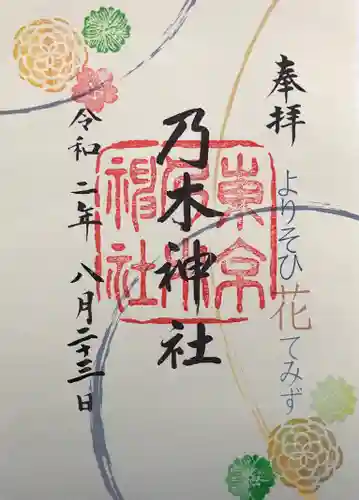 奉拝
よりそひ花てみず
乃木神社
東京乃木神社
令和二年八月二十三日